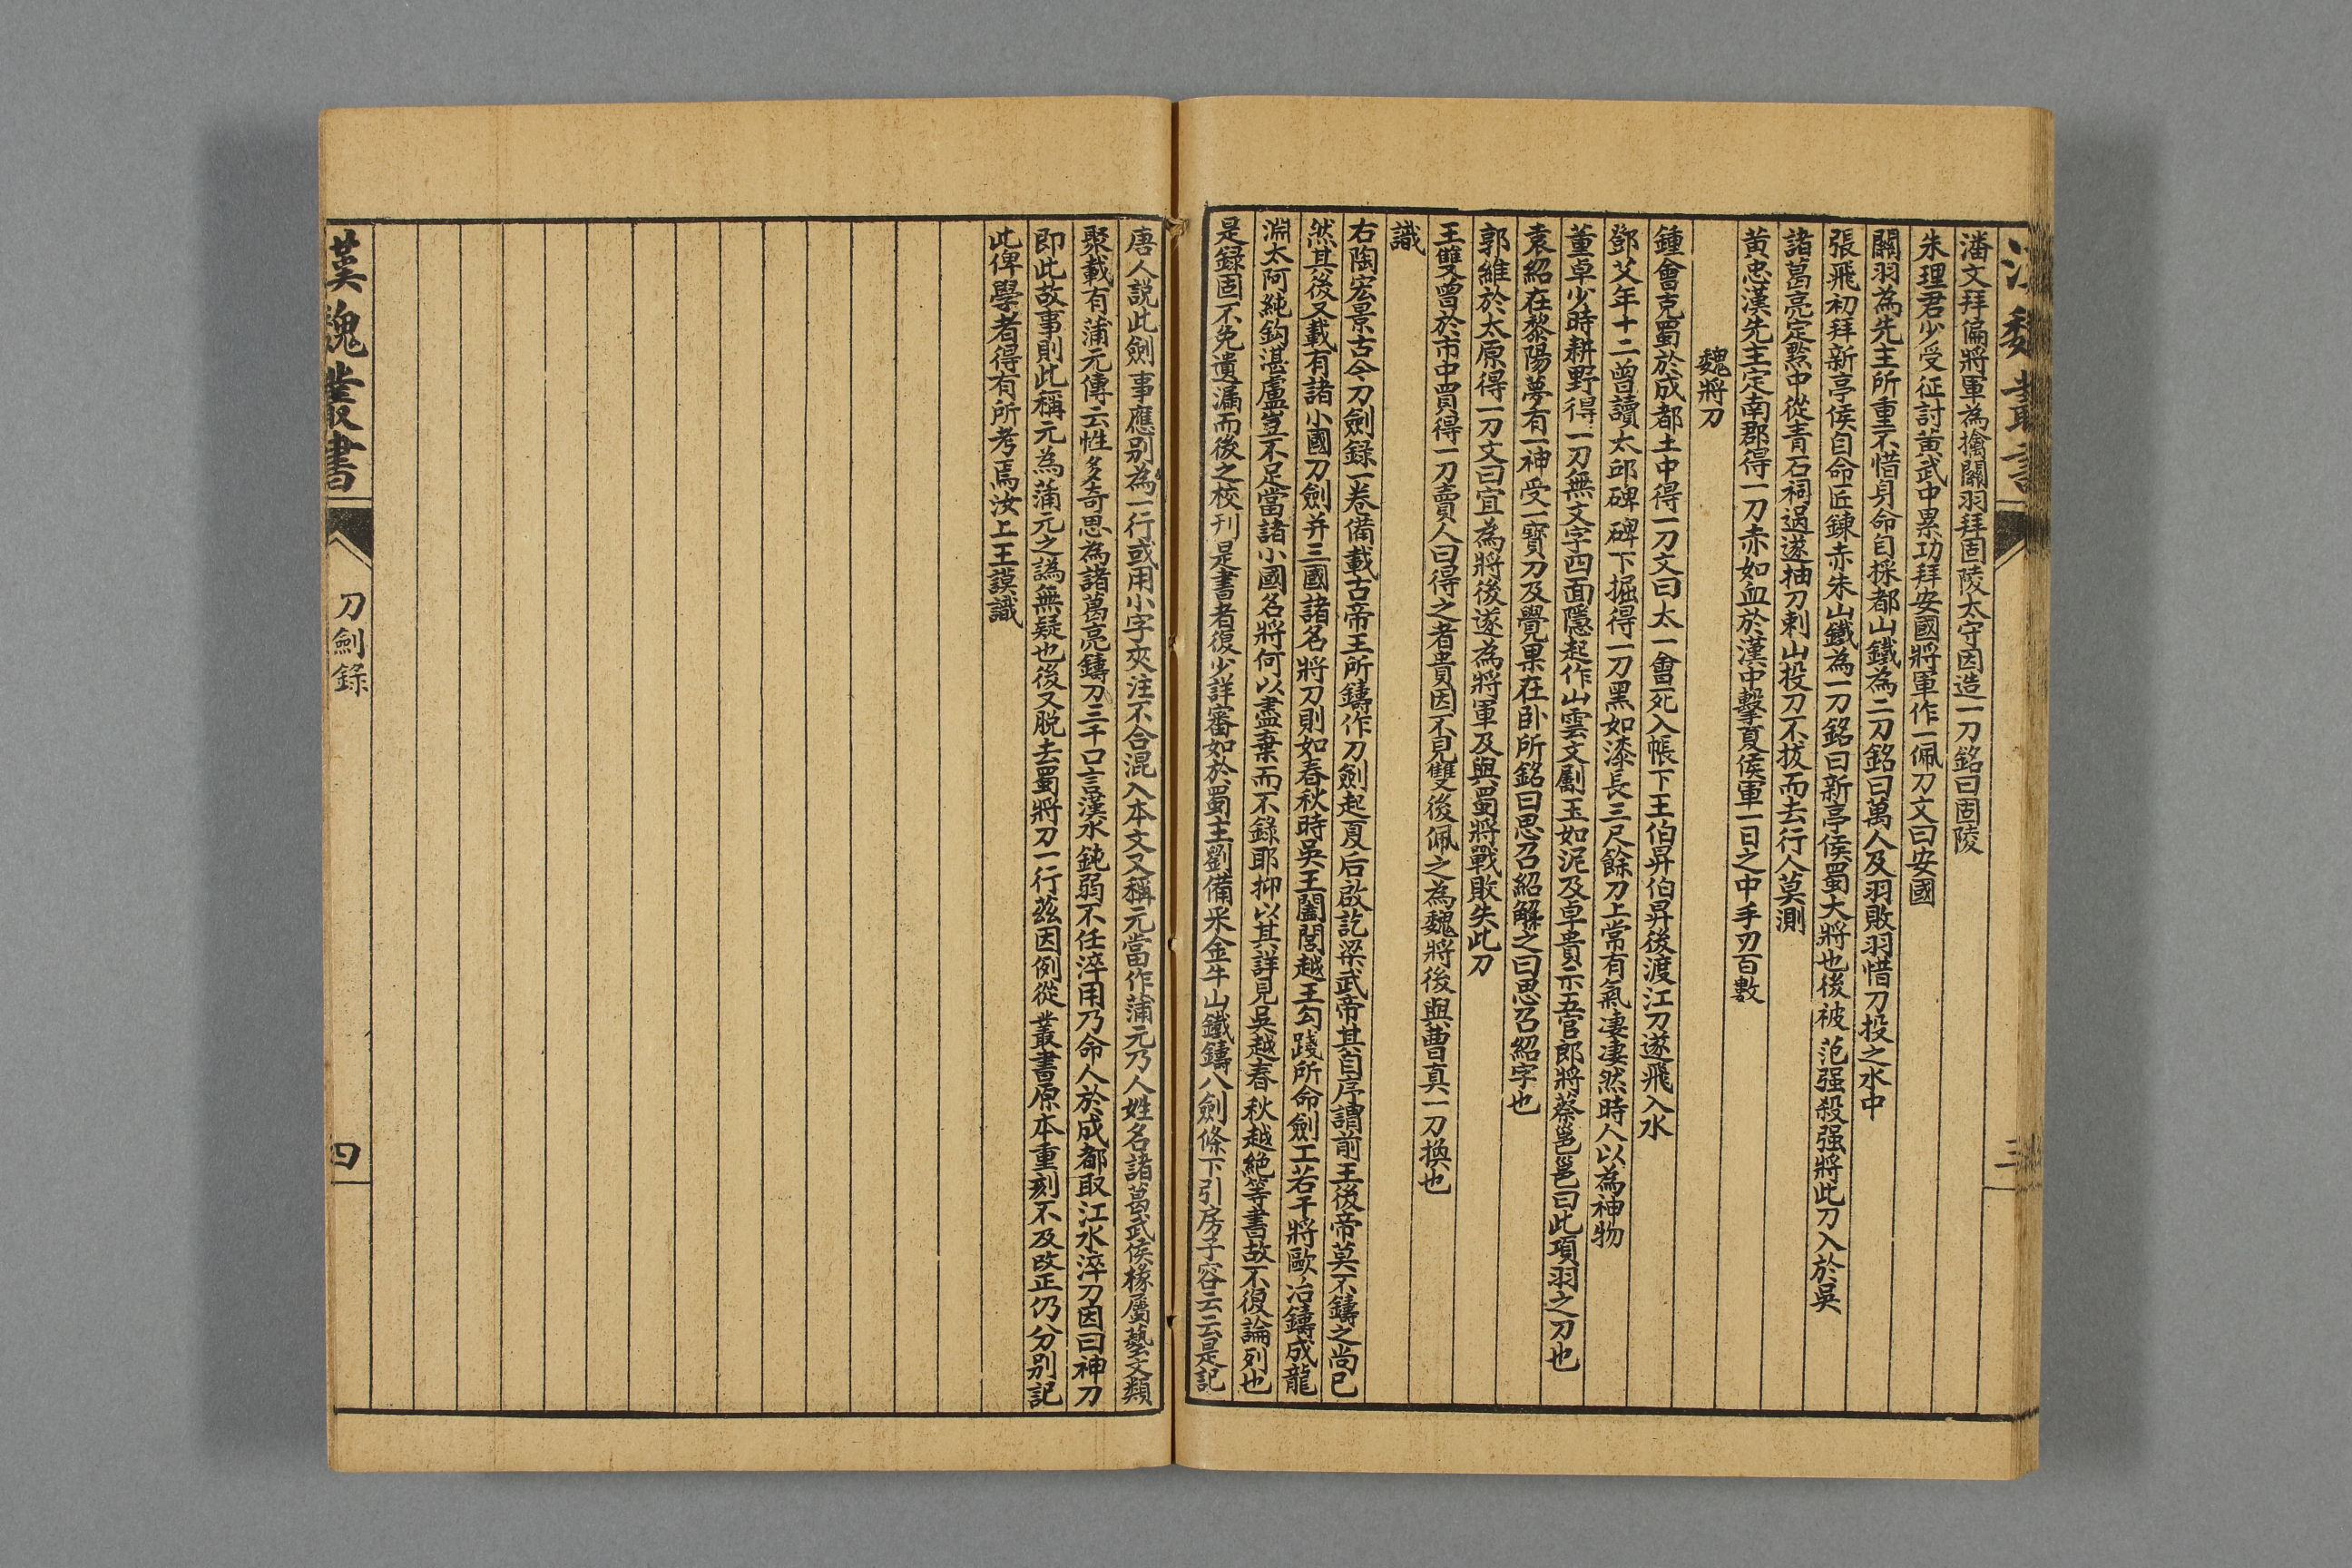 潘文拜偏將軍為擒關羽拜固陵太守因造一刀銘曰固陵
朱理君少受征討黃武中累功拜安國將軍作一佩刀文曰安國
關羽為先主所重不惜身命自採都山鐵為二刀銘曰萬人及羽敗羽惜刀投之水中
張飛初拜新亭侯自命匠鍊赤朱山鐵為一刀銘曰新亭侯蜀大將也後被范强殺强將此刀入於吳
諸葛亮定黔中從青石祠過遂抽刀刺山投刀不拔而去行人莫測
黃忠漢先主定南郡得一刀赤如血於漢中擊夏侯軍一日之中手刃百數
魏將刀
鍾會克蜀於成都土中得一刀文曰太一會死入帳下王伯昇伯昇後渡江刀遂飛入水
鄧艾年十二曾讀太邱碑碑下掘得一刀黑如漆長三尺餘刀上常有氣凄凄然時人以為神物
董卓少時耕野得一刀無文字四面隱起作山雲文劚玉如泥及卓貴示五官郎將蔡邕邕曰此項羽之刀也
袁紹在黎陽夢有一神受一寶刀及覺果在卧所銘曰思召紹解之曰思召紹字也
郭維於太原得一刀文曰宜為將後遂為將軍及與蜀將戰敗失此刀
王雙曾於市中買得一刀賣人曰得之者貴因不見雙後佩之為魏將後與曹真一刀換也
識
右陶宏景古今刀劍錄一卷備載古帝王所鑄作刀劍起夏后啟訖梁武帝其自序謂前王後帝莫不鑄之尚已
然其後又載有諸小國刀劍并三國諸名將刀則如春秋時吳王闔閭越王勾踐所命劍工若干將歐冶鑄成龍
淵太阿純鈎湛盧豈不足當諸小國名將何以盡棄而不錄耶抑以其詳見吳越春秋越絕等書故不復論列也
是錄固不免遺漏而後之校刊是書者復少詳審如於蜀主劉備采金牛山鐵鑄八劍條下引房子容云云是記
唐人說此劍事應別為一行或用小字夾注不合混入本文又稱元當作蒲元乃人姓名諸葛武侯椽屬藝文類
聚載有蒲元傳云性多奇思為諸葛亮鑄刀三千口言漢水鈍弱不任淬用乃命人於成都取江水淬刀因曰神刀
即此故事則此稱元為蒲元之譌無疑也後又脫去蜀將刀一行茲因例從叢書原本重刻不及改正仍分別記
此俾學者得有所考焉汝上王謨識
漢魏叢書
刀劍錄
四